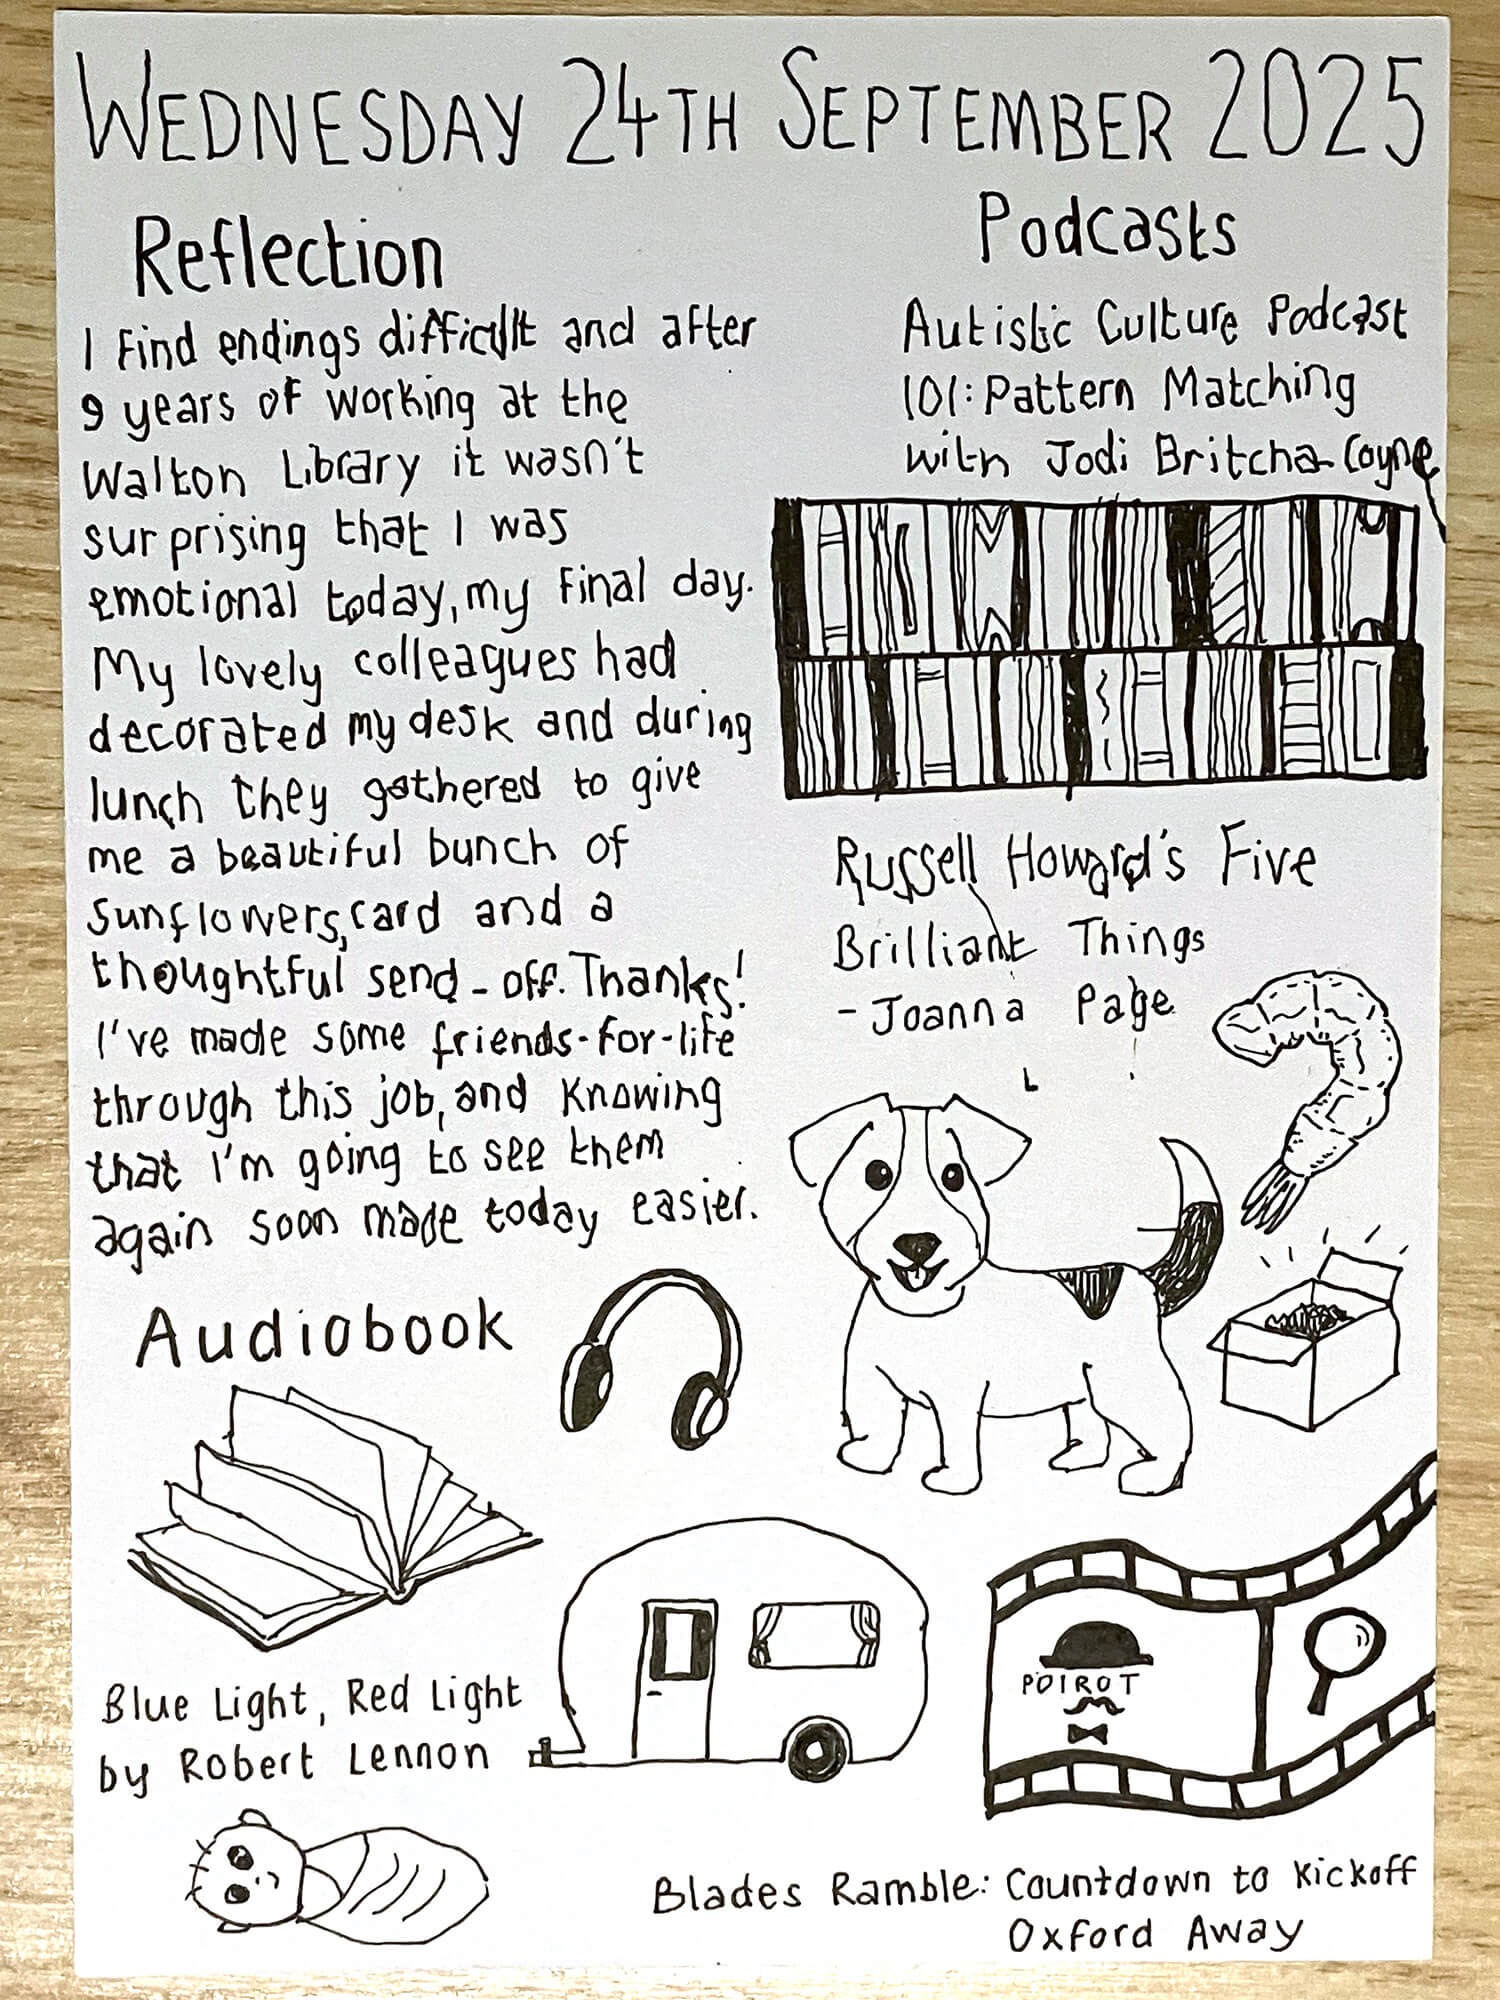 WEDNESDAY 24TH SEPTEMBER 2025
Reflection
I find endings difficult and after
9 years of working at the
Walton Library it wasn't
surprising that I was
emotional today, my final day.
My lovely colleagues had
decorated my desk and during
lunch they gathered to give
me a beautiful bunch of
sunflowers, card and a
thoughtful send-off. Thanks!
I've made some friends-for-life
through this job, and knowing
that I'm going to see them
again soon made today easier.
Audiobook
Blue Light, Red Light
by Robert Lennon
Podcasts
Autistic Culture Podcast
101: Pattern Matching
with Jodi Britcha-Coyne
Russell Howard's Five
Brilliant Things
- Joanna Page
POIROT
Blades Ramble: Countdown to Kickoff
Oxford Away